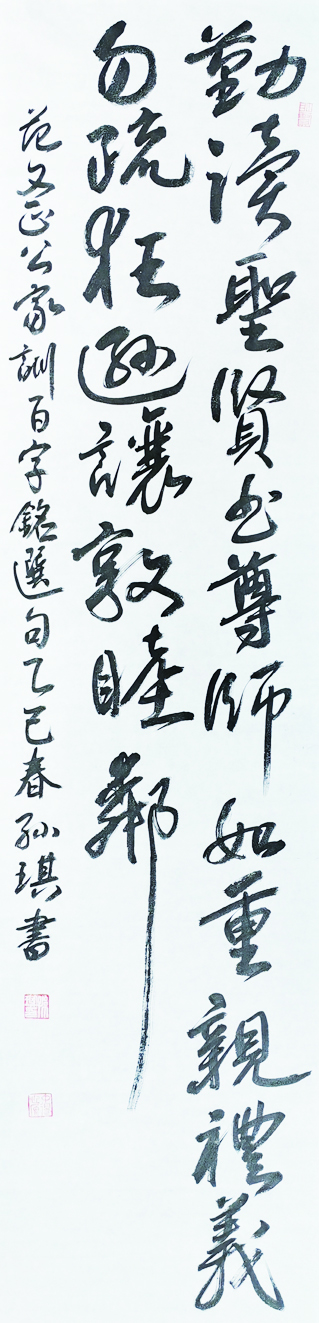 勤讀聖賢书尊師如重親禮義
勿疏狂遜讓敦睦鄰
范文正公家訓百字銘選句乙巳春孫琪書